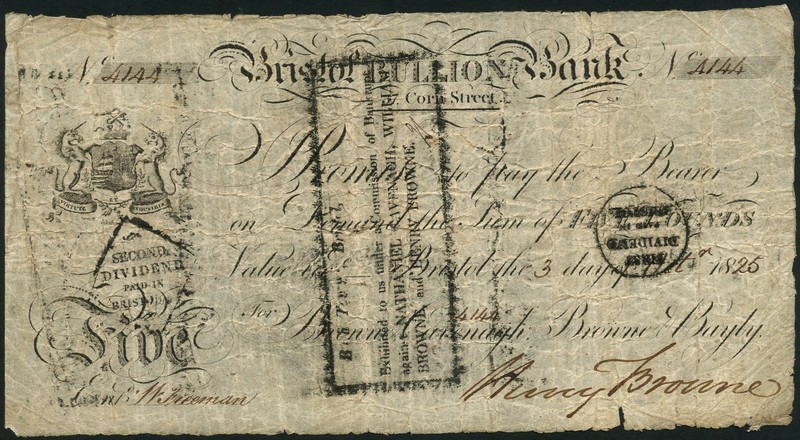 No. 4144
Bristol BULLION Bank No. 4144
Corn Street.
I Promise to pay the Bearer
on Demand the Sum of FIVE POUNDS
Value Bristol the 3 day of 1825
4144
For Browne, Cavenagh, Browne & Bayly.
Five
Entd. W. Freeman
Henry Browne
VIRTUTE
SECOND
DIVIDEND
PAID IN
BRISTOL
FIRST
DIVIDEND
Exhibited to us under a Commission of Bankrupt
against NATHANIEL CAVENAGH, WILLIAM
BROWNE, and HENRY BROWNE.